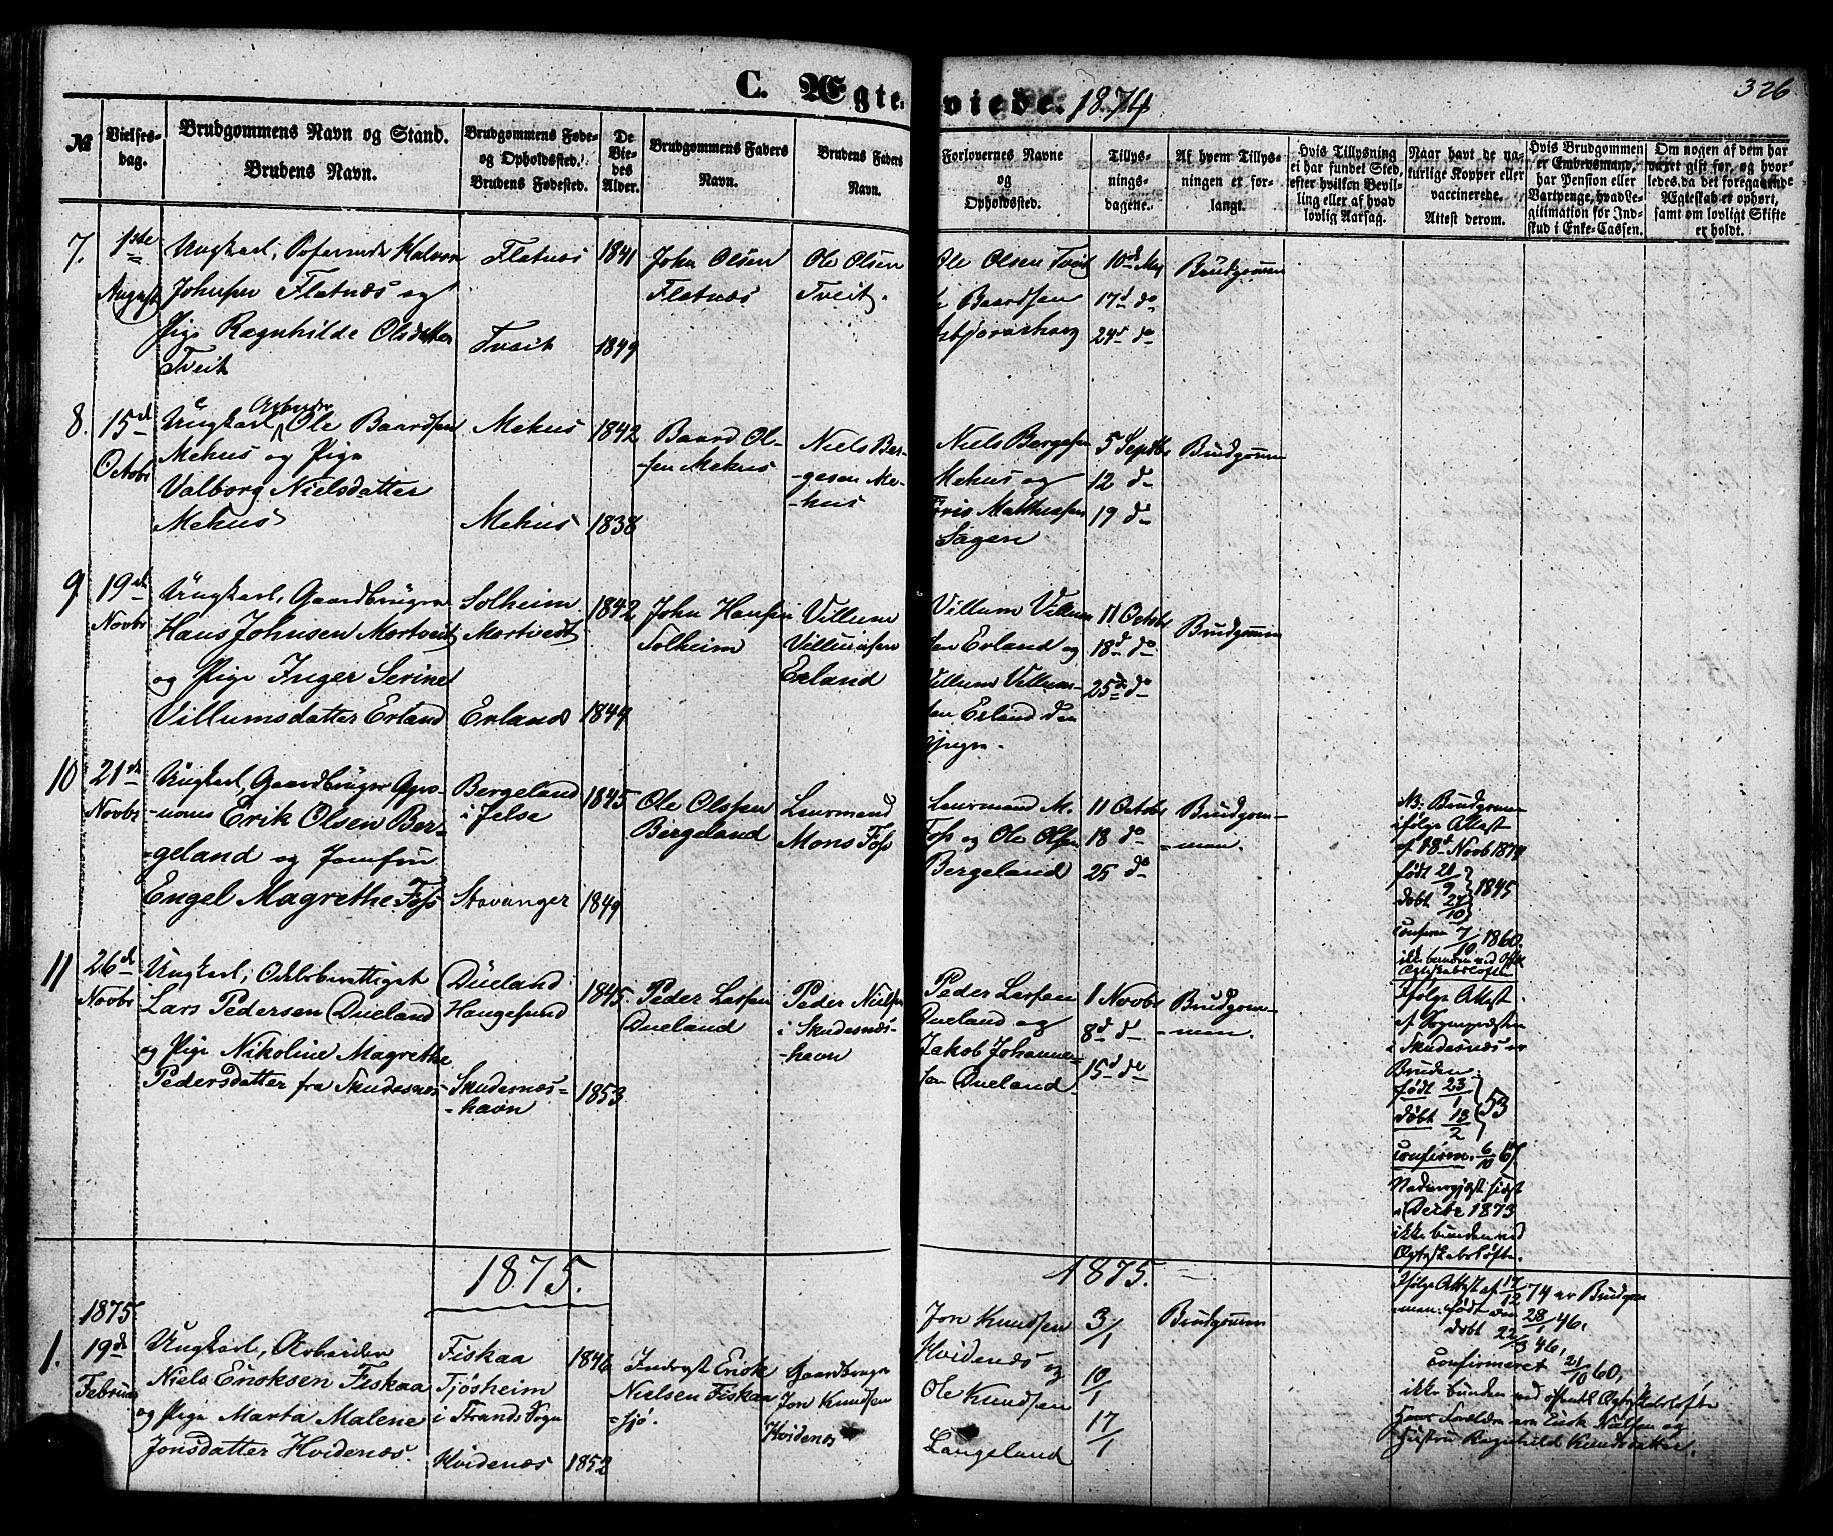 C. Ægteviede. 1874
326
№
Vielses-
dag.
Brudgommens Navn og Stand.
Brudens Navn.
Brudgommens Føde-
og Opholdssted.
Brudens Fødested.
De
Vie-
des
Alder.
Brudgommens Faders
Navn.
Brudens Faders
Navn.
Forlovernes Navne
og
Opholdssted.
Tillys-
nings-
dagene.
Af hvem Tillys-
ningen er for-
langt.
Hvis Tillysning
ei har fundet Sted,
efter hvilken Bevil-
ling eller af hvad
lovlig Aarsag.
Naar havt de na-
turlige Kopper eller
vaccinerede.
Attest derom.
Hvis Brudgommen
er Embedsmand,
har Pension eller
Vartpenge, hvad Le-
gitimation for Ind-
skud i Enke-Cassen.
Om nogen af dem har
været gift før, og hvor-
ledes da det foregaaende
Ægteskab er ophørt,
samt om lovligt Skifte
er holdt.
7.
1ste
August
Ungkarl, Halvor
Johnsen Flatnæs og
Pige Ragnhilde Olsdatter
Tveit
Flatnæs
Tveit
1841
1849
John Olsen
Flatnæs
Ole Olsen
Tveit.
Ole Olsen Tveit
Baardsen
10de Mai
17d do
24d do
Brudgommen
8.
15d
Octobr
Arbeider
Ungkarl Ole Baardsen
Mehus og Pige
Valborg Nielsdatter
Mehus
Mehus
Mehus
1842
1838
Baard Ol-
sen Mehus
Niels Ber-
gesen Me-
hus
Niels Bergesen
Mehus og
Matthiasen
Sagen
5 Septbr
12 do
19 do
Brudgommen
9
19de
Novbr
Ungkarl, Gaardbruger
Hans Johnsen Mortvedt
og Pige Inger Serine
Villumsdatter Erland
Solheim
Mortvedt
Erland
1842
1849
John Hansen
Solheim
Villum
Villumsen
Erland
Villum Villum-
sen Erland og
Villum Villum-
sen Erland den
yngre.
11 Octobr
18d do
25d do
Brudgommen
10
21de
Novbr
Ungkarl, Gaardbruger Agro-
nom Erik Olsen Ber-
geland og Jomfru
Engel Magrethe Foss
Bergeland
i Jelse
Stavanger
1845
1849
Ole Olssen
Bergeland
Lensmand
Mons Foss
Lensmand M.
Foss og Ole Olsen
Bergeland
11 Octobr
18 do
25 do
Brudgom-
men.
NB: Brudgommen
ifølge Attest
af 18d Novb 1874
født 21/9
døbt 24/10 1845
Confirm 7/10 1860.
ikke bunden ved Off.
Ægteskabsløfte
11
26de
Novbr
Ungkarl, Odelsberettiget
Lars Pedersen Dueland
og Pige Nikoline Magrethe
Pedersdatter fra Skudesnæs
Dueland
Haugesund
Skudesnæs-
havn
1845.
1853
Peder Larsen
Dueland
Peder Nielsen
i Skudesnæs-
havn
Peder Larsen
Dueland og
Jakob Johanne-
sen Dueland
1 Novbr
8d do
15d do
Brudgom-
men.
Ifølge Attest
af Sognepræsten
i Skudesnæs er
Bruden
født 23/1
døbt 13/2 53
Confirm. 6/10 67.
Nadvergjæst sidst
i Decbr 1873
ikke bunden ved
Ægteskabsløfte.
1875.
1875.
1875
1.
19de
Februar
Ungkarl, Arbeider
Niels Enoksen Fiskaa
og Pige Marta Malene
Jonsdatter Hvidenæs.
Fiskaa
Tjøsheim
i Strands Sogn
Hvidenæs
1846
1852
Inderst Enok
Nielsen Fiskaa
sjø.
Gaardbruger
Jon Knudsen
Hvidenæs
Jon Knudsen
Hvidenæs og
Ole Knudsen
Langeland
3/1
10/1
17/1
Brudgommen
Ifølge Attest af 17/12 74 er Brudgom-
men født den 28/1 46,
døbt 22/3 46,
Confirmeret 21/10 60,
ikke bunden ved offentl Ægteskabsløfte
Hans Forældre ere Enok Nielsen og
Hustru Ragnhild Knudsdatter.